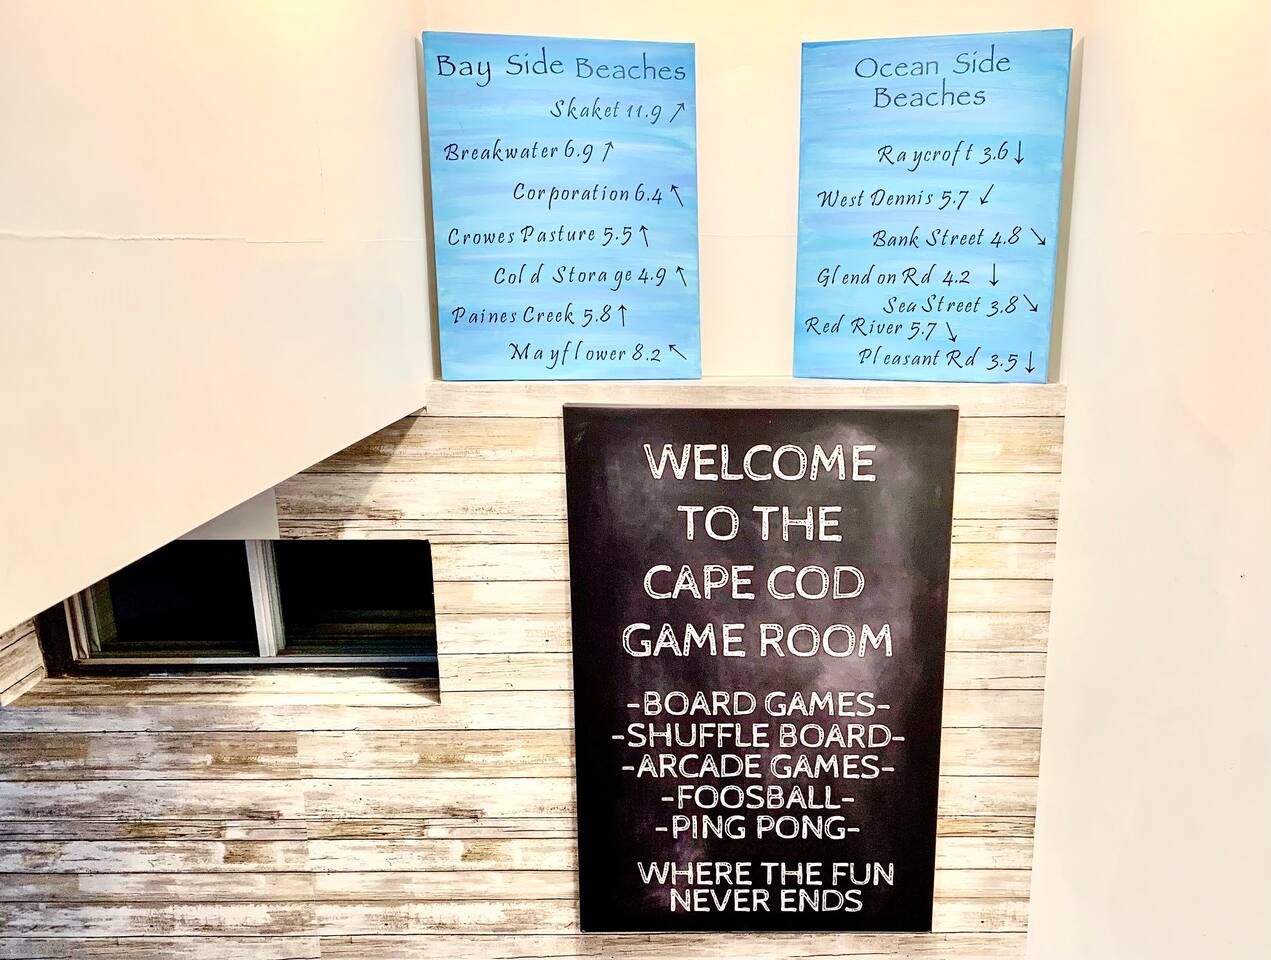 Bay Side Beaches
Skaket 11.9 ↗
Breakwater 6.9 ↑
Corporation 6.4 ↖
Crowes Pasture 5.5 ↑
Cold Storage 4.9 ↖
Paines Creek 5.8 ↑
Mayflower 8.2 ↖
Ocean Side
Beaches
Raycroft 3.6 ↓
West Dennis 5.7 ↙
Bank Street 4.8 ↘
Glendon Rd 4.2 ↓
Sea Street 3.8 ↘
Red River 5.7 ↘
Pleasant Rd 3.5 ↓
WELCOME
TO THE
CAPE COD
GAME ROOM
-BOARD GAMES-
-SHUFFLE BOARD-
-ARCADE GAMES-
-FOOSBALL-
-PING PONG-
WHERE THE FUN
NEVER ENDS